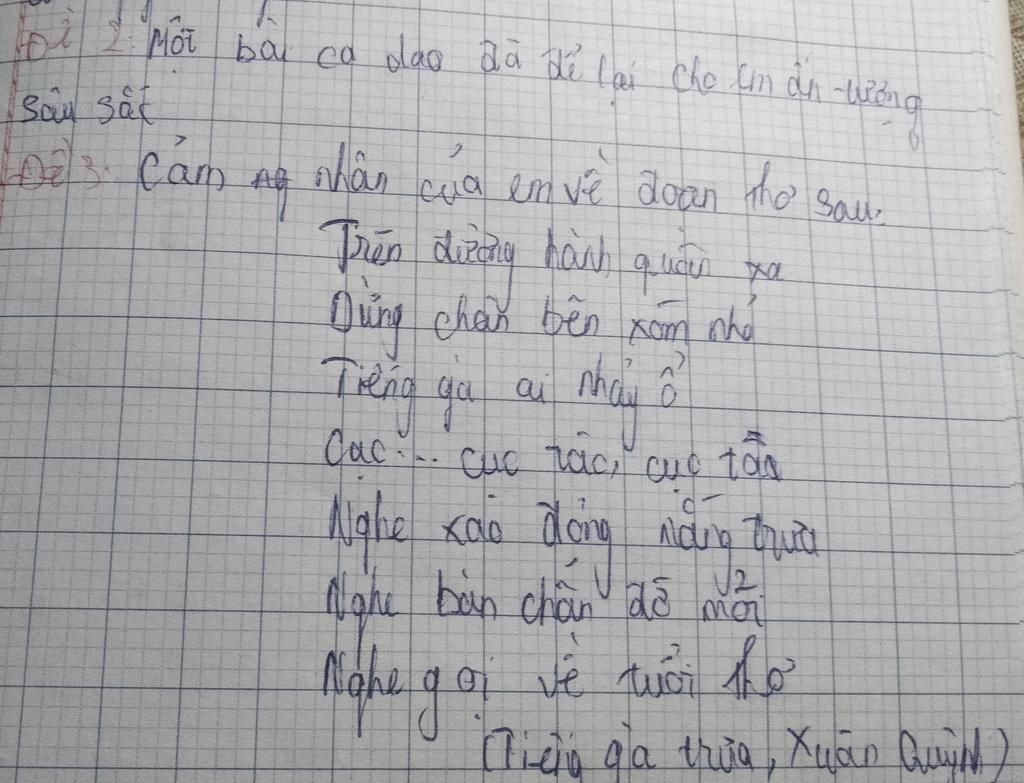 Đề 2: Một bài ca dao đã để lại cho em ấn tượng
sâu sắc
Đề 3: Cảm nhân của em về đoạn thơ sau:
Trên đường hành quân xa
Dừng chân bên xóm nhỏ
Tiếng gà ai nhảy ổ
Cục... cục tác, cục ta
Nghe xao động nắng trưa
Nghe bàn chân đỡ mỏi
Nghe gọi về tuổi thơ
(Tiếng gà trưa, Xuân Quỳnh)